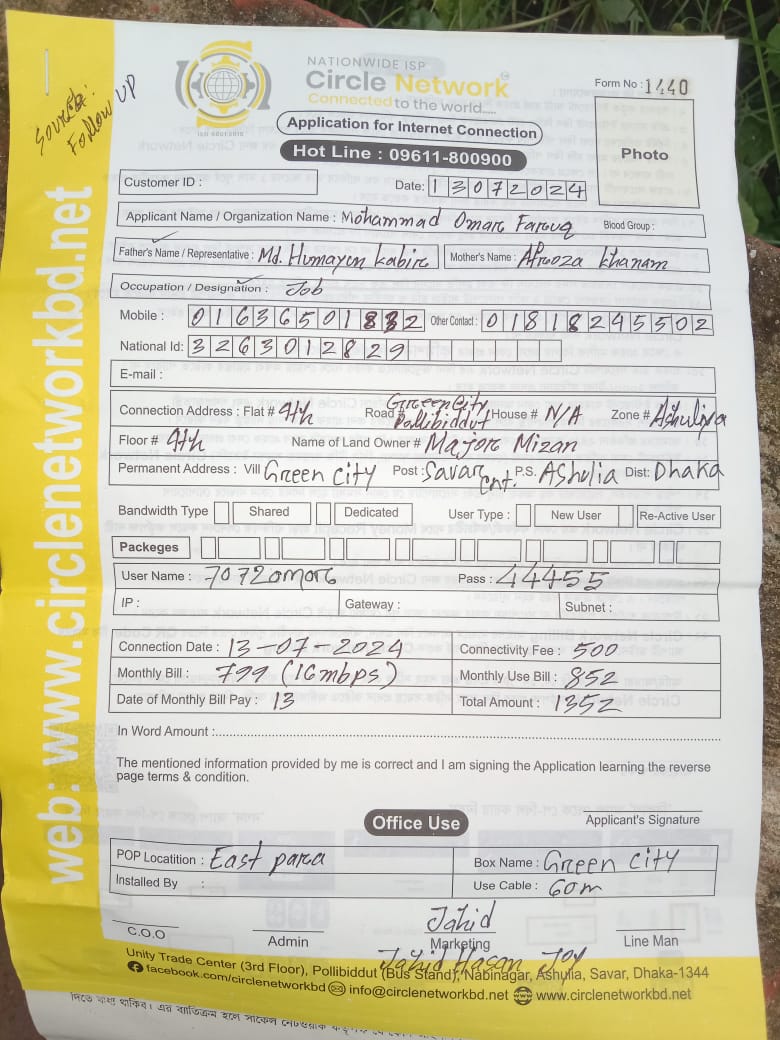 Source:
Follow UP
NATIONWIDE ISP
Circle Network
Connected to the world.....
ISO 9001:2015
Form No : 1440
Application for Internet Connection
Hot Line : 09611-800900
Photo
Customer ID :
Date: 13072024
Applicant Name / Organization Name : Mohammad Omar Faruq
Blood Group :
Father's Name / Representative : Md. Humayun Kabir
Mother's Name : Afroza Khanam
Occupation / Designation : Job
Mobile : 01636501832 Other Contact : 01818245502
National Id: 3263012829
E-mail :
Connection Address : Flat # 4th Road # Green City Pallibiddut House # N/A Zone # Ashuliya
Floor # 4th Name of Land Owner # Major Mizan
Permanent Address : Vill Green City Post : Savar Cnt. P.S. Ashulia Dist: Dhaka
Bandwidth Type Shared Dedicated User Type : New User Re-Active User
Packeges
User Name : 7072omar Pass : 44455
IP : Gateway : Subnet :
Connection Date : 13-07-2024 Connectivity Fee : 500
Monthly Bill : 799 (16mbps) Monthly Use Bill : 852
Date of Monthly Bill Pay : 13 Total Amount : 1352
In Word Amount :
The mentioned information provided by me is correct and I am signing the Application learning the reverse
page terms & condition.
Applicant's Signature
Office Use
POP Locatition : East para Box Name : Green City
Installed By : Use Cable : 60m
Jahid
C.O.O Admin Marketing Line Man
Jahid Hasan Joy
Unity Trade Center (3rd Floor), Pollibiddut (Bus Stand), Nabinagar, Ashulia, Savar, Dhaka-1344
facebook.com/circlenetworkbd info@circlenetworkbd.net www.circlenetworkbd.net
web: www.circlenetworkbd.net
দিতে বাধ্য থাকিব। এর ব্যতিক্রম হলে সার্কেল নেটওয়ার্ক